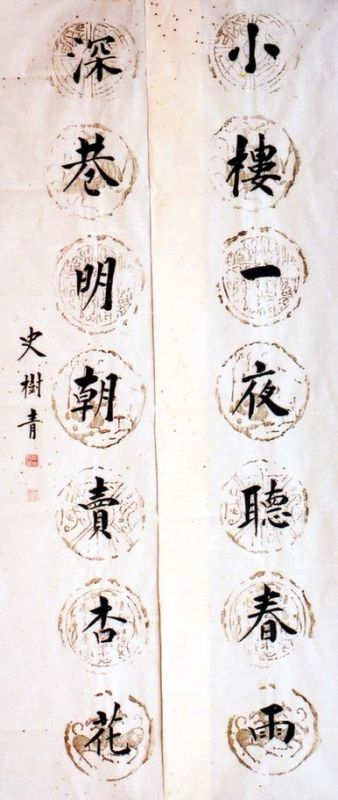 小樓一夜聽春雨
深巷明朝賣杏花
史樹青